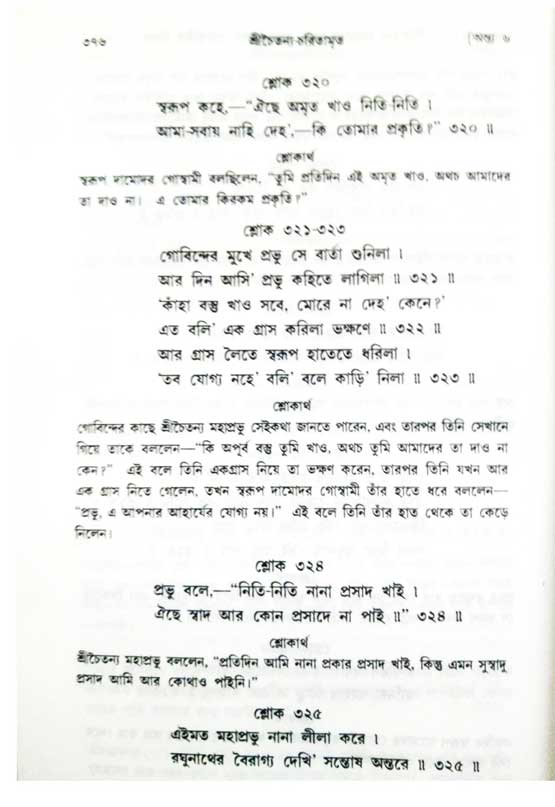 ৩৭৬ শ্রীচৈতন্য-চরিতামৃত [অন্ত্য ৬
শ্লোক ৩২০
স্বরূপ কহে,—“ঐছে অমৃত খাও নিতি-নিতি ।
আমা-সবায় নাহি দেহ',—কি তোমার প্রকৃতি?” ৩২০ ॥
শ্লোকার্থ
স্বরূপ দামোদর গোস্বামী বলছিলেন, “তুমি প্রতিদিন এই অমৃত খাও, অথচ আমাদের
তা দাও না। এ তোমার কিরকম প্রকৃতি?”
শ্লোক ৩২১-৩২৩
গোবিন্দের মুখে প্রভু সে বার্তা শুনিলা ।
আর দিন আসি' প্রভু কহিতে লাগিলা ॥ ৩২১ ॥
'কাঁহা বস্তু খাও সবে, মোরে না দেহ' কেনে?'
এত বলি' এক গ্রাস করিলা ভক্ষণে ॥ ৩২২ ॥
আর গ্রাস লৈতে স্বরূপ হাতেতে ধরিলা ।
'তব যোগ্য নহে' বলি' বলে কাড়ি' নিলা ॥ ৩২৩ ॥
শ্লোকার্থ
গোবিন্দের কাছে শ্রীচৈতন্য মহাপ্রভু সেইকথা জানতে পারেন, এবং তারপর তিনি সেখানে
গিয়ে তাকে বললেন—“কি অপূর্ব বস্তু তুমি খাও, অথচ তুমি আমাদের তা দাও না
কেন?” এই বলে তিনি একগ্রাস নিয়ে তা ভক্ষণ করেন, তারপর তিনি যখন আর
এক গ্রাস নিতে গেলেন, তখন স্বরূপ দামোদর গোস্বামী তাঁর হাতে ধরে বললেন—
“প্রভু, এ আপনার আহার্যের যোগ্য নয়।” এই বলে তিনি তাঁর হাত থেকে তা কেড়ে
নিলেন।
শ্লোক ৩২৪
প্রভু বলে,—“নিতি-নিতি নানা প্রসাদ খাই ।
ঐছে স্বাদ আর কোন প্রসাদে না পাই ॥” ৩২৪ ॥
শ্লোকার্থ
শ্রীচৈতন্য মহাপ্রভু বললেন, “প্রতিদিন আমি নানা প্রকার প্রসাদ খাই, কিন্তু এমন সুস্বাদু
প্রসাদ আমি আর কোথাও পাইনি।”
শ্লোক ৩২৫
এইমত মহাপ্রভু নানা লীলা করে ।
রঘুনাথের বৈরাগ্য দেখি' সন্তোষ অন্তরে ॥ ৩২৫ ॥